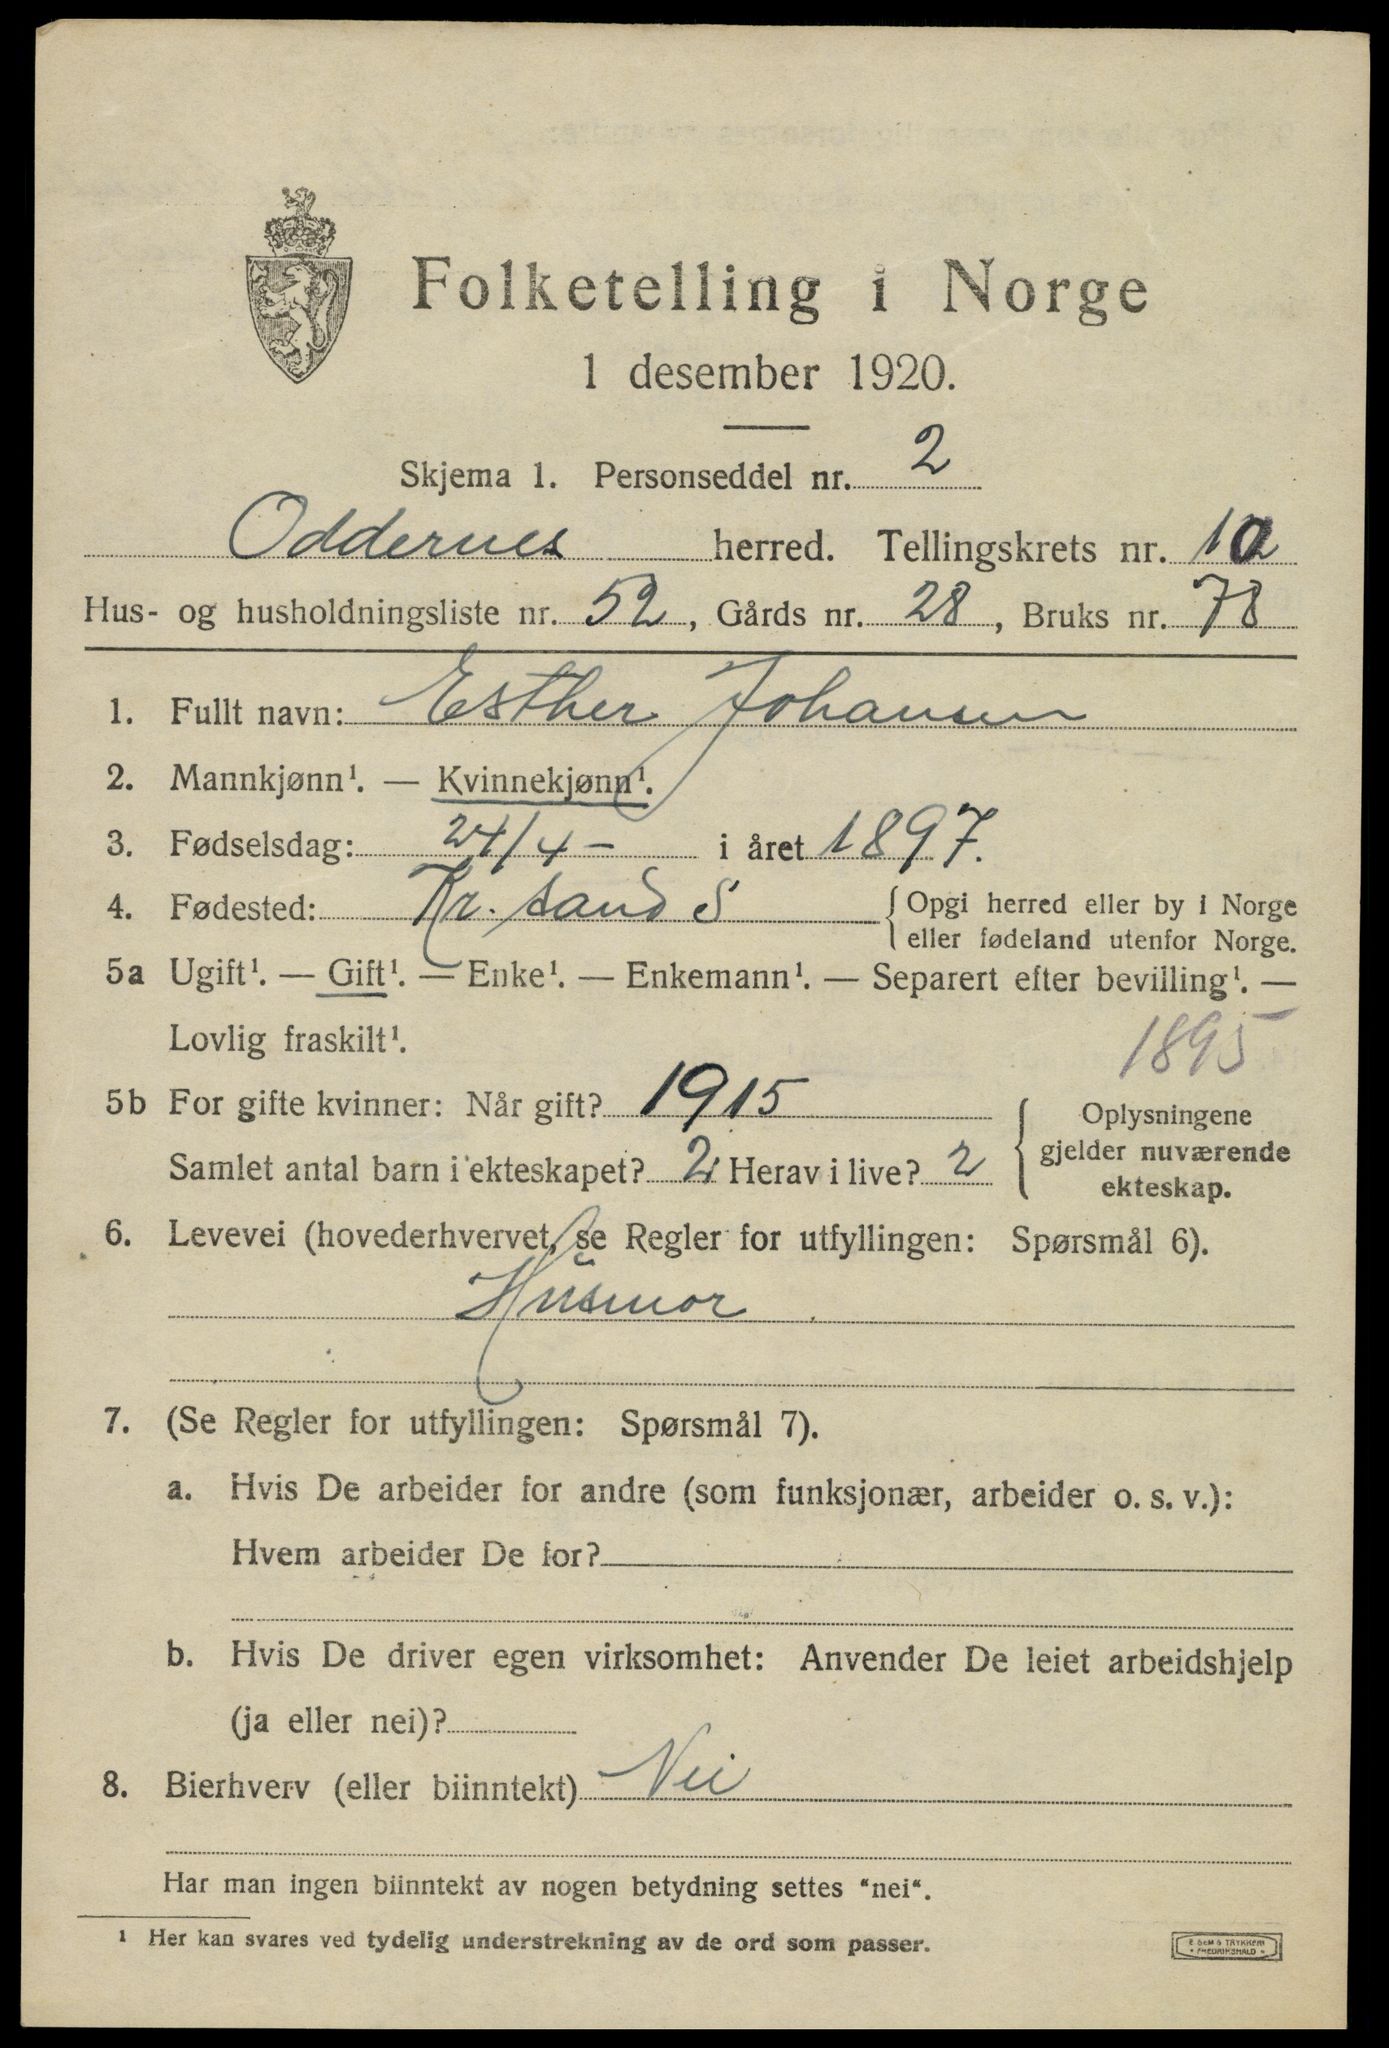 Folketelling i Norge
1 desember 1920.
Skjema 1. Personseddel nr. 2
Oddernes herred. Tellingskrets nr. 10
Hus- og husholdningsliste nr. 52, Gårds nr. 28, Bruks nr. 78
1. Fullt navn: Esther Johansen
2. Mannkjønn¹. — Kvinnekjønn¹.
3. Fødselsdag: 24/4 - i året 1897.
4. Fødested: Kr. sand S { Opgi herred eller by i Norge
eller fødeland utenfor Norge.
5a Ugift¹. — Gift¹. — Enke¹. — Enkemann¹. — Separert efter bevilling¹. —
Lovlig fraskilt¹.
1895
5b For gifte kvinner: Når gift? 1915
Samlet antal barn i ekteskapet? 2 Herav i live? 2
{ Oplysningene
gjelder nuværende
ekteskap.
6. Levevei (hovederhvervet, se Regler for utfyllingen: Spørsmål 6).
Husmor
7. (Se Regler for utfyllingen: Spørsmål 7).
a. Hvis De arbeider for andre (som funksjonær, arbeider o. s. v.):
Hvem arbeider De for?
b. Hvis De driver egen virksomhet: Anvender De leiet arbeidshjelp
(ja eller nei)?
8. Bierhverv (eller biinntekt) Nei
Har man ingen biinntekt av nogen betydning settes "nei".
¹ Her kan svares ved tydelig understrekning av de ord som passer.
E. SEM'S TRYKKERI
• FREDRIKSHALD •